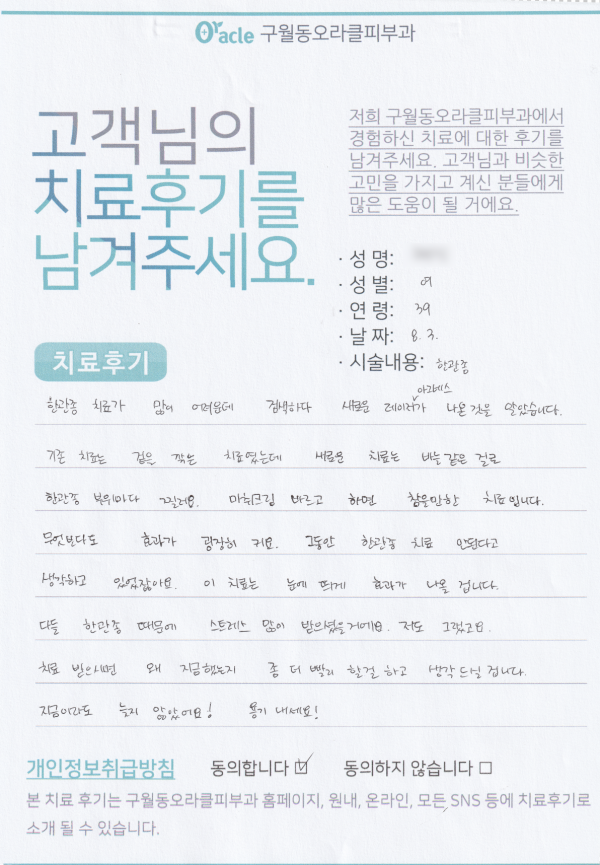 Oracle 구월동오라클피부과
고객님의
치료후기를
남겨주세요.
저희 구월동오라클피부과에서
경험하신 치료에 대한 후기를
남겨주세요. 고객님과 비슷한
고민을 가지고 계신 분들에게
많은 도움이 될 거에요.
· 성 명:
· 성 별: 여
· 연 령: 39
· 날 짜: 8. 3.
· 시술내용: 한관종
치료후기
아그네스
한관종 치료가 많이 어려운데 검색하다 새로운 레이저가 나온것을 알았습니다.
기존 치료는 겉을 깎는 치료였는데 새로운 치료는 바늘같은 걸로
한관종 부위마다 찔러요. 마취크림 바르고 하면 참을만한 치료입니다.
무엇보다도 효과가 굉장히 커요. 그동안 한관종 치료 안된다고
생각하고 있었잖아요. 이 치료는 눈에 띄게 효과가 나올 겁니다.
다들 한관종 때문에 스트레스 많이 받으셨을거에요. 저도 그랬고요.
치료 받으시면 왜 지금했는지 좀 더 빨리 할걸 하고 생각드실 겁니다.
지금이라도 늦지 않았어요! 용기 내세요!
개인정보취급방침 동의합니다 ☑ 동의하지 않습니다 □
본 치료 후기는 구월동오라클피부과 홈페이지, 원내, 온라인, 모든 SNS 등에 치료후기로
소개 될 수 있습니다.